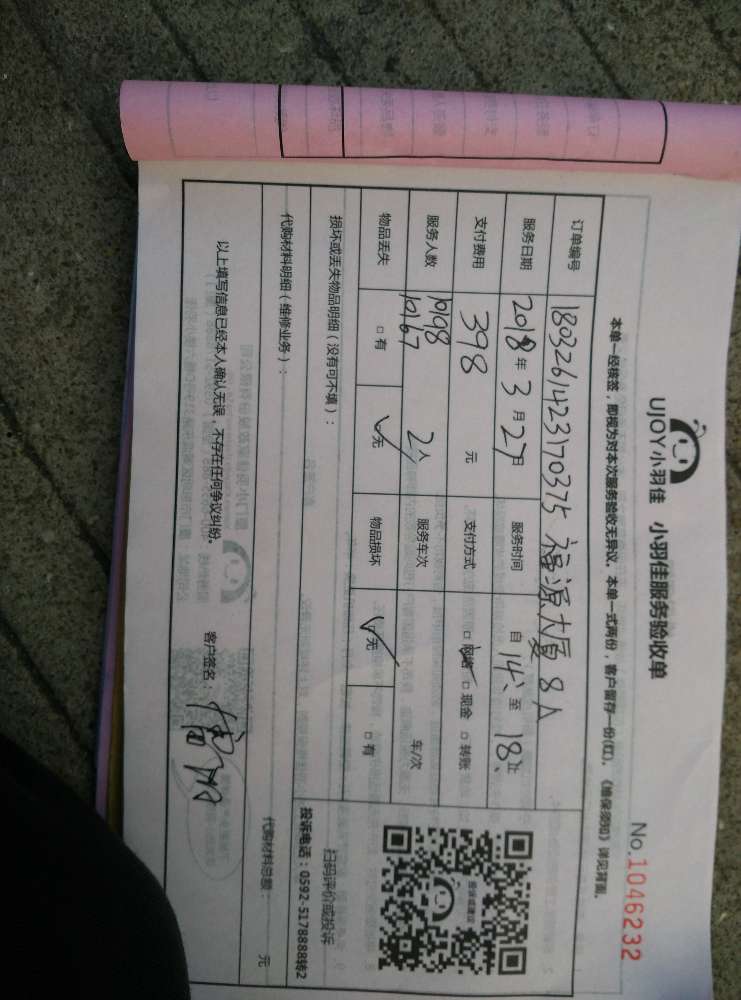 UJOY小羽佳 小羽佳服务验收单
No.1046232
本单一经核签，即视为对本次服务验收无异议。本单一式两份，客户留存一份(红)。《维保须知》详见背面。
订单编号 1803261423170375 福源大厦8A
服务日期 2018年3月27日 服务时间 自14:至18:止
支付费用 398元 支付方式 □网络 □现金 □转账
服务人数 10198 10167 2人 服务车次 车/次
物品丢失 □有 □无 物品损坏 □无 □有
损坏或丢失物品明细（没有可不填）：
扫码评价或投诉
投诉电话：0592-5178888转2
代购材料明细（维修业务）：
代购材料总额： 元
以上填写信息已经本人确认无误，不存在任何争议纠纷。
客户签名：